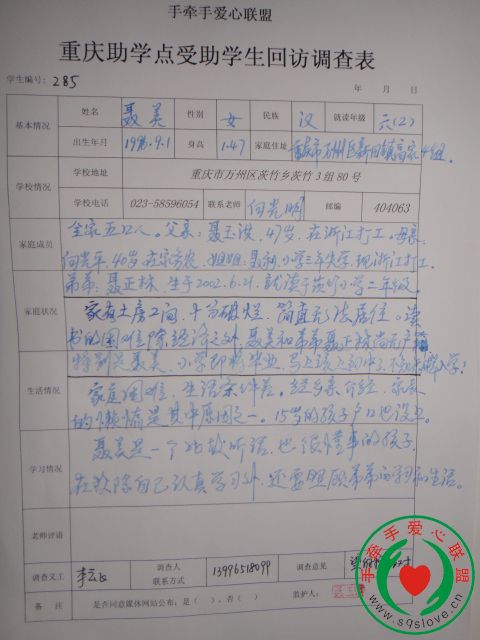 手牵手爱心联盟
重庆助学点受助学生回访调查表
学生编号: 285 年 月 日
基本情况 姓名 聂美 性别 女 民族 汉 就读年级 六(2)
出生年月 1996.9.1 身高 1.47 家庭住址 重庆市万州区新田镇高家4组.
学校情况 学校地址 重庆市万州区茨竹乡茨竹3组80号
学校电话 023-58596054 联系老师 向光明 邮编 404063
家庭成员 全家五口人。父亲: 聂玉洪, 47岁, 在浙江打工。母亲:
40岁 在家务农. 姐姐: 聂利 小学三年失学, 现浙江打工.
弟弟: 聂正林, 生于2002.6.21, 就读于茨竹小学二年级.
家庭状况 家有土房二间, 十分破烂, 简直无法居住。读
书的困难除经济之外, 聂美和弟弟聂正林尚无户籍
特别是聂美, 小学即将毕业, 马上该上初中了, 不知 入学?
生活情况 家庭困难, 生活条件差。经乡亲介绍, 家长
的懒惰是其中原因之一。15岁的孩子户口也没上。
学习情况 聂美是一个比较听话, 也很懂事的孩子
在校除自己认真学习外, 还要照顾弟弟的学习和生活。
老师评语
调查义工 李云 调查人联系方式 13996518099 调查意见
备注 是否同意媒体网站公布: 是(√), 否( ) 监护人:
手牵手爱心联盟
www.sqslove.cn